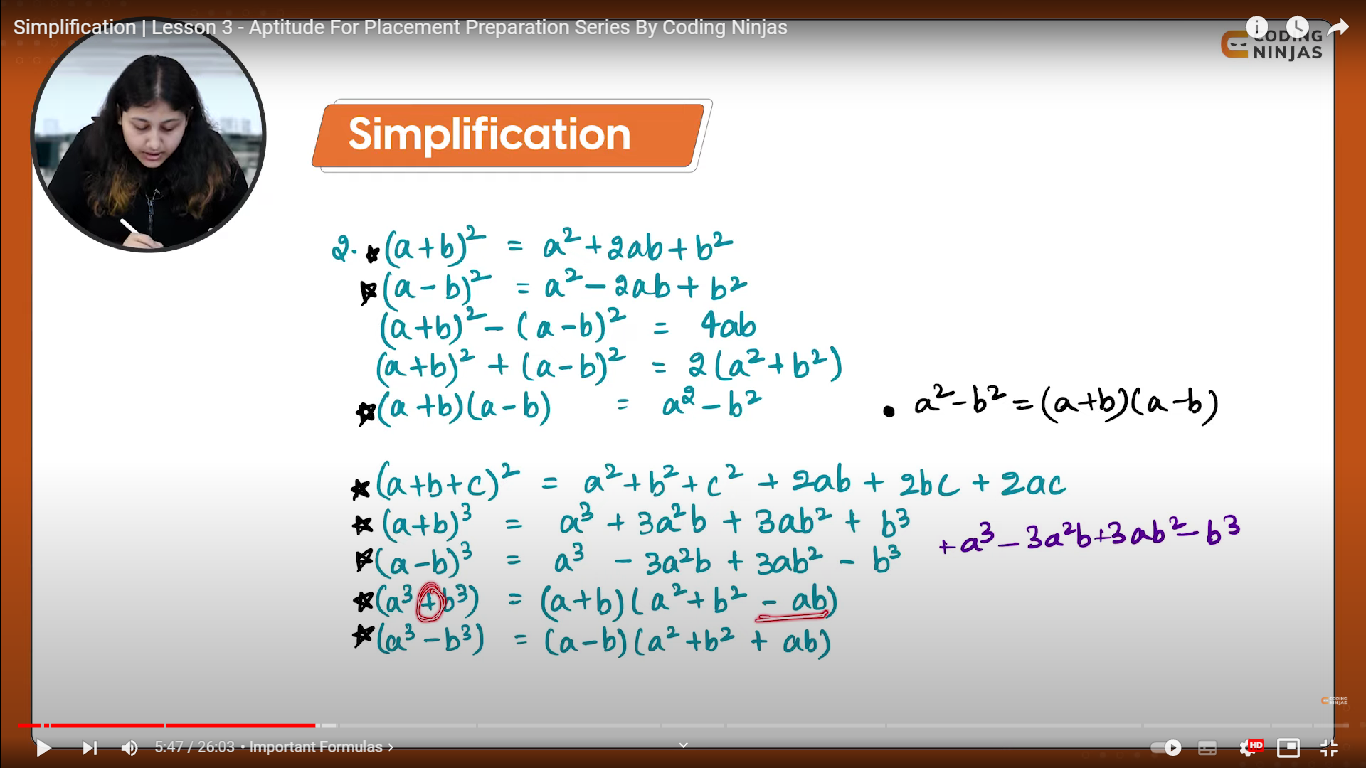 Simplification | Lesson 3 - Aptitude For Placement Preparation Series By Coding Ninjas
CODING
NINJAS
Simplification
2. ★(a+b)² = a²+2ab+b²
★(a-b)² = a²-2ab+b²
(a+b)²-(a-b)² = 4ab
(a+b)²+(a-b)² = 2(a²+b²)
★(a+b)(a-b) = a²-b²
• a²-b²=(a+b)(a-b)
★(a+b+c)² = a²+b²+c²+2ab+2bc+2ac
★(a+b)³ = a³+3a²b+3ab²+b³
+a³-3a²b+3ab²-b³
★(a-b)³ = a³-3a²b+3ab²-b³
★(a³+b³) = (a+b)(a²+b²-ab)
★(a³-b³) = (a-b)(a²+b²+ab)
CODING
NINJAS
5:47 / 26:03 • Important Formulas >
HD